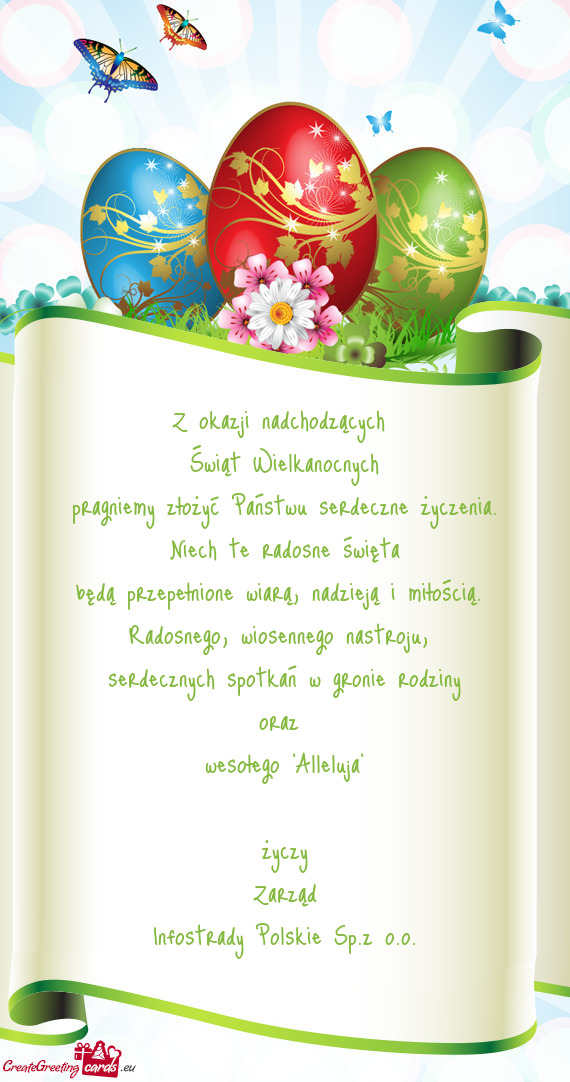 Z okazji nadchodzących
Świąt Wielkanocnych
pragniemy złożyć Państwu serdeczne życzenia.
Niech te radosne święta
będą przepełnione wiarą, nadzieją i miłością.
Radosnego, wiosennego nastroju,
serdecznych spotkań w gronie rodziny
oraz
wesołego "Alleluja"
życzy
Zarząd
Infostrady Polskie Sp.z o.o.
CreateGreeting cards .eu